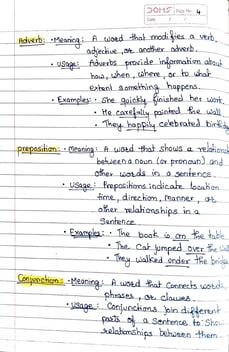 DOMS Page No. 4
Date
Adverb: • Meaning: A word that modifies a verb,
adjective, or another adverb.
• Usage: Adverbs provide information about
how, when, where, or to what
extent something happens.
• Examples: • She quickly finished her work.
• He carefully painted the wall
• They happily celebrated
preposition: • Meaning: A word that shows a
between a noun (or pronoun) and
other words in a sentence.
• Usage: Prepositions indicate location
time, direction, manner, or
other relationships in a
Sentence
• Examples: • The book is on the table
• The Cat jumped over the
• They walked under the
Conjunction: • Meaning: A word that connects words,
phrases, or clauses.
• Usage: Conjunctions join different
parts of a sentence to show
relationships between them.